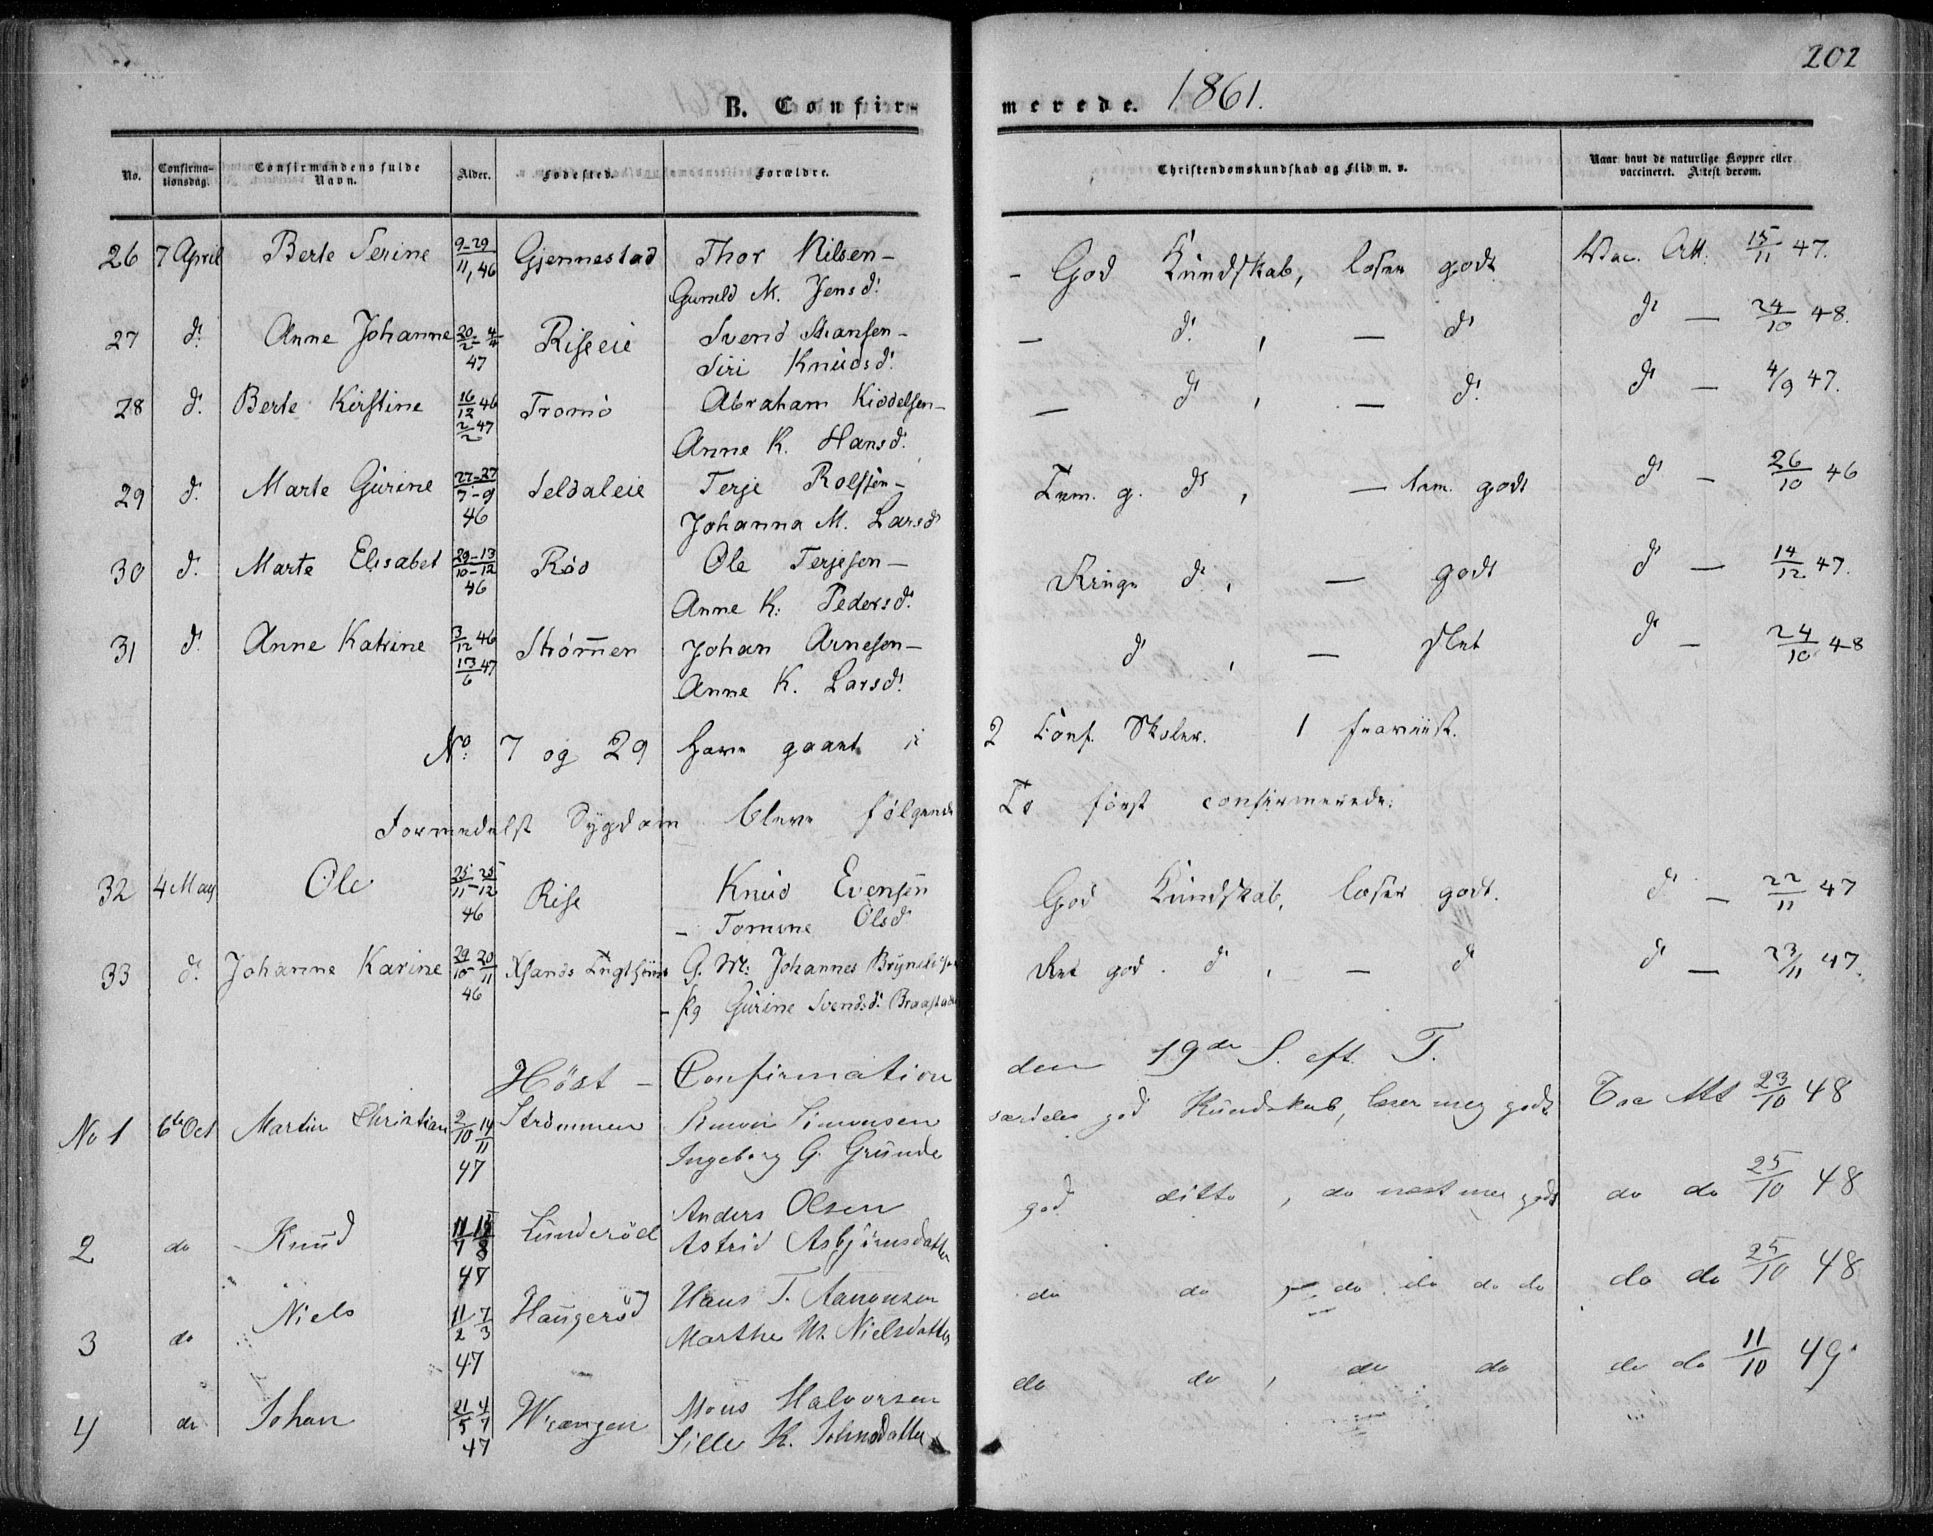 202
B. Confirmerede. 1861.
No. Confirmationsdag. Confirmandens fulde Navn. Alder. Fødested. Forældre. Christendomskundskab og Flid m. v. Naar havt de naturlige Kopper eller vaccineret. Attest derom.
26 7 April Berte Serine 9-29/11, 46 Gjennestad Thor Nilsen - God Kundskab, læser godt Vac. Att. 15/11 47.
Gunild M. Jensd.
27 d. Anne Johanne 20/2 - 4/4 47 Riseeie Svend - d. , - d. d. - 24/10 48.
Siri Knudsd.
28 d. Berte Kirstine 16/12 46 2/2 47 Tromö Abraham Kiddelsen - d. , - d. d. - 4/9 47.
Anne K. Hansd.
29 d. Marte Gurine 27-27/7-9 46 Seldaleie Terje Rolfsen - Tem. g. d. , - tem. godt d. - 26/10 46
Johanna M. Larsd.
30 d. Marte Elisabet 29-13/10-12 46 Röd Ole Terjesen - Ringe d. , - godt d. - 14/12 47.
Anne K. Pedersd.
31 d. Anne Katrine 3/12 46 13/6 47 Strömmen Johan Arnesen - d. , - slet d. - 24/10 48
Anne K. Larsd.
No. 7 og 29 have gaaet i 2 Conf. Skoler. 1 fraviist.
Formedelst Sygdom bleve følgende To først confirmerede:
32 4 May Ole 25-25/11-12 46 Rise Knud Evensen God Kundskab, læser godt. d. - 22/11 47
- Tomine Olsd.
33 d. Johanne Karine 29/10 20/11 46 G. M. Johannes Brynelsen Ret god. d. , - d. d. - 23/11 47.
- Pg Gurine Svendsd. Braastad
Höst - Confirmation den 19de S. eft. T.
No 1 6te Oct Martin Christian 2/10 14/11 47 Strömmen Simon Simonsen særdeles god Kundskab, læser meg godt Vac Att 23/10 48
Ingeborg G. Grunde
2 do Knud 11/7 15/8 47 Lunderöd Anders Olsen god ditto, do næst meg godt do do 25/10 48
Astrid Asbjörnsdatter
3 do Niels 11/2 7/3 47 Haugeröd Hans T. Aanonsen do do , do do do do do do 25/10 48
Marthe M. Nielsdatter
4 do Johan 21/5 4/7 47 Wrængen Mons Halvorsen do do , do do do do 11/10 49
Sille K. Johnsdatter